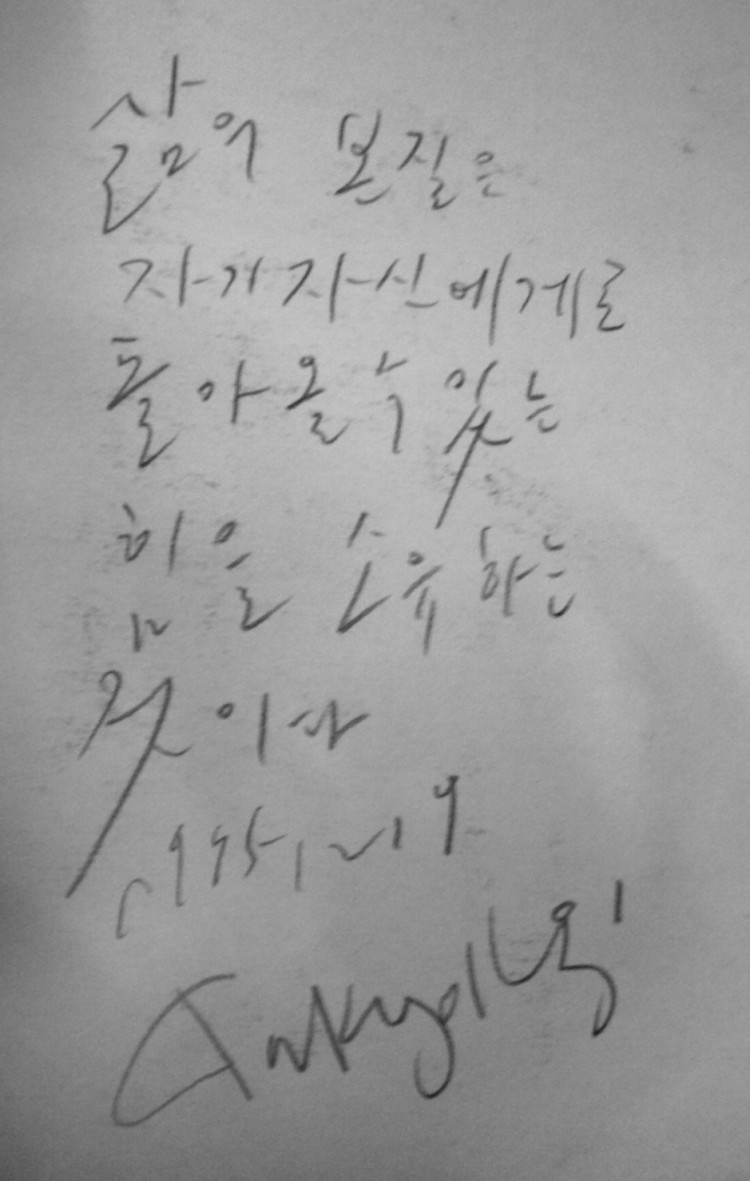 삶의 본질은
자기자신에게로
돌아올수 있는
힘을 소유하는
것이다
1995, 12, 19